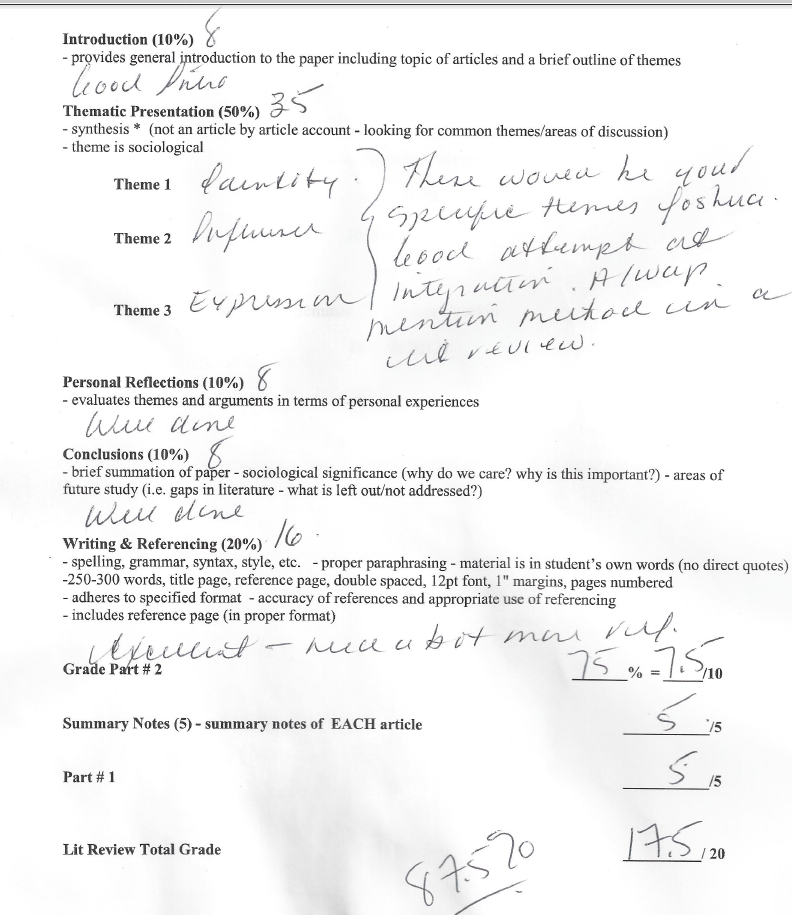 Introduction (10%) 8
- provides general introduction to the paper including topic of articles and a brief outline of themes
Good Intro
Thematic Presentation (50%) 35
- synthesis * (not an article by article account - looking for common themes/areas of discussion)
- theme is sociological
Theme 1 Identity. These would be your
specific themes Joshua.
Theme 2 Influences
Good attempt at
integration. Always
Theme 3 Expression
mention method in a
lit review.
Personal Reflections (10%) 8
- evaluates themes and arguments in terms of personal experiences
Well done
Conclusions (10%) 8
- brief summation of paper - sociological significance (why do we care? why is this important?) - areas of
future study (i.e. gaps in literature - what is left out/not addressed?)
Well done
Writing & Referencing (20%) 16
- spelling, grammar, syntax, style, etc. - proper paraphrasing - material is in student's own words (no direct quotes)
-250-300 words, title page, reference page, double spaced, 12pt font, 1" margins, pages numbered
- adheres to specified format - accuracy of references and appropriate use of referencing
- includes reference page (in proper format)
excellent - need a bit more ref.
Grade Part # 2 75 % = 7.5 /10
Summary Notes (5) - summary notes of EACH article 5 /5
Part # 1 5 /5
Lit Review Total Grade 17.5 / 20
87.5%